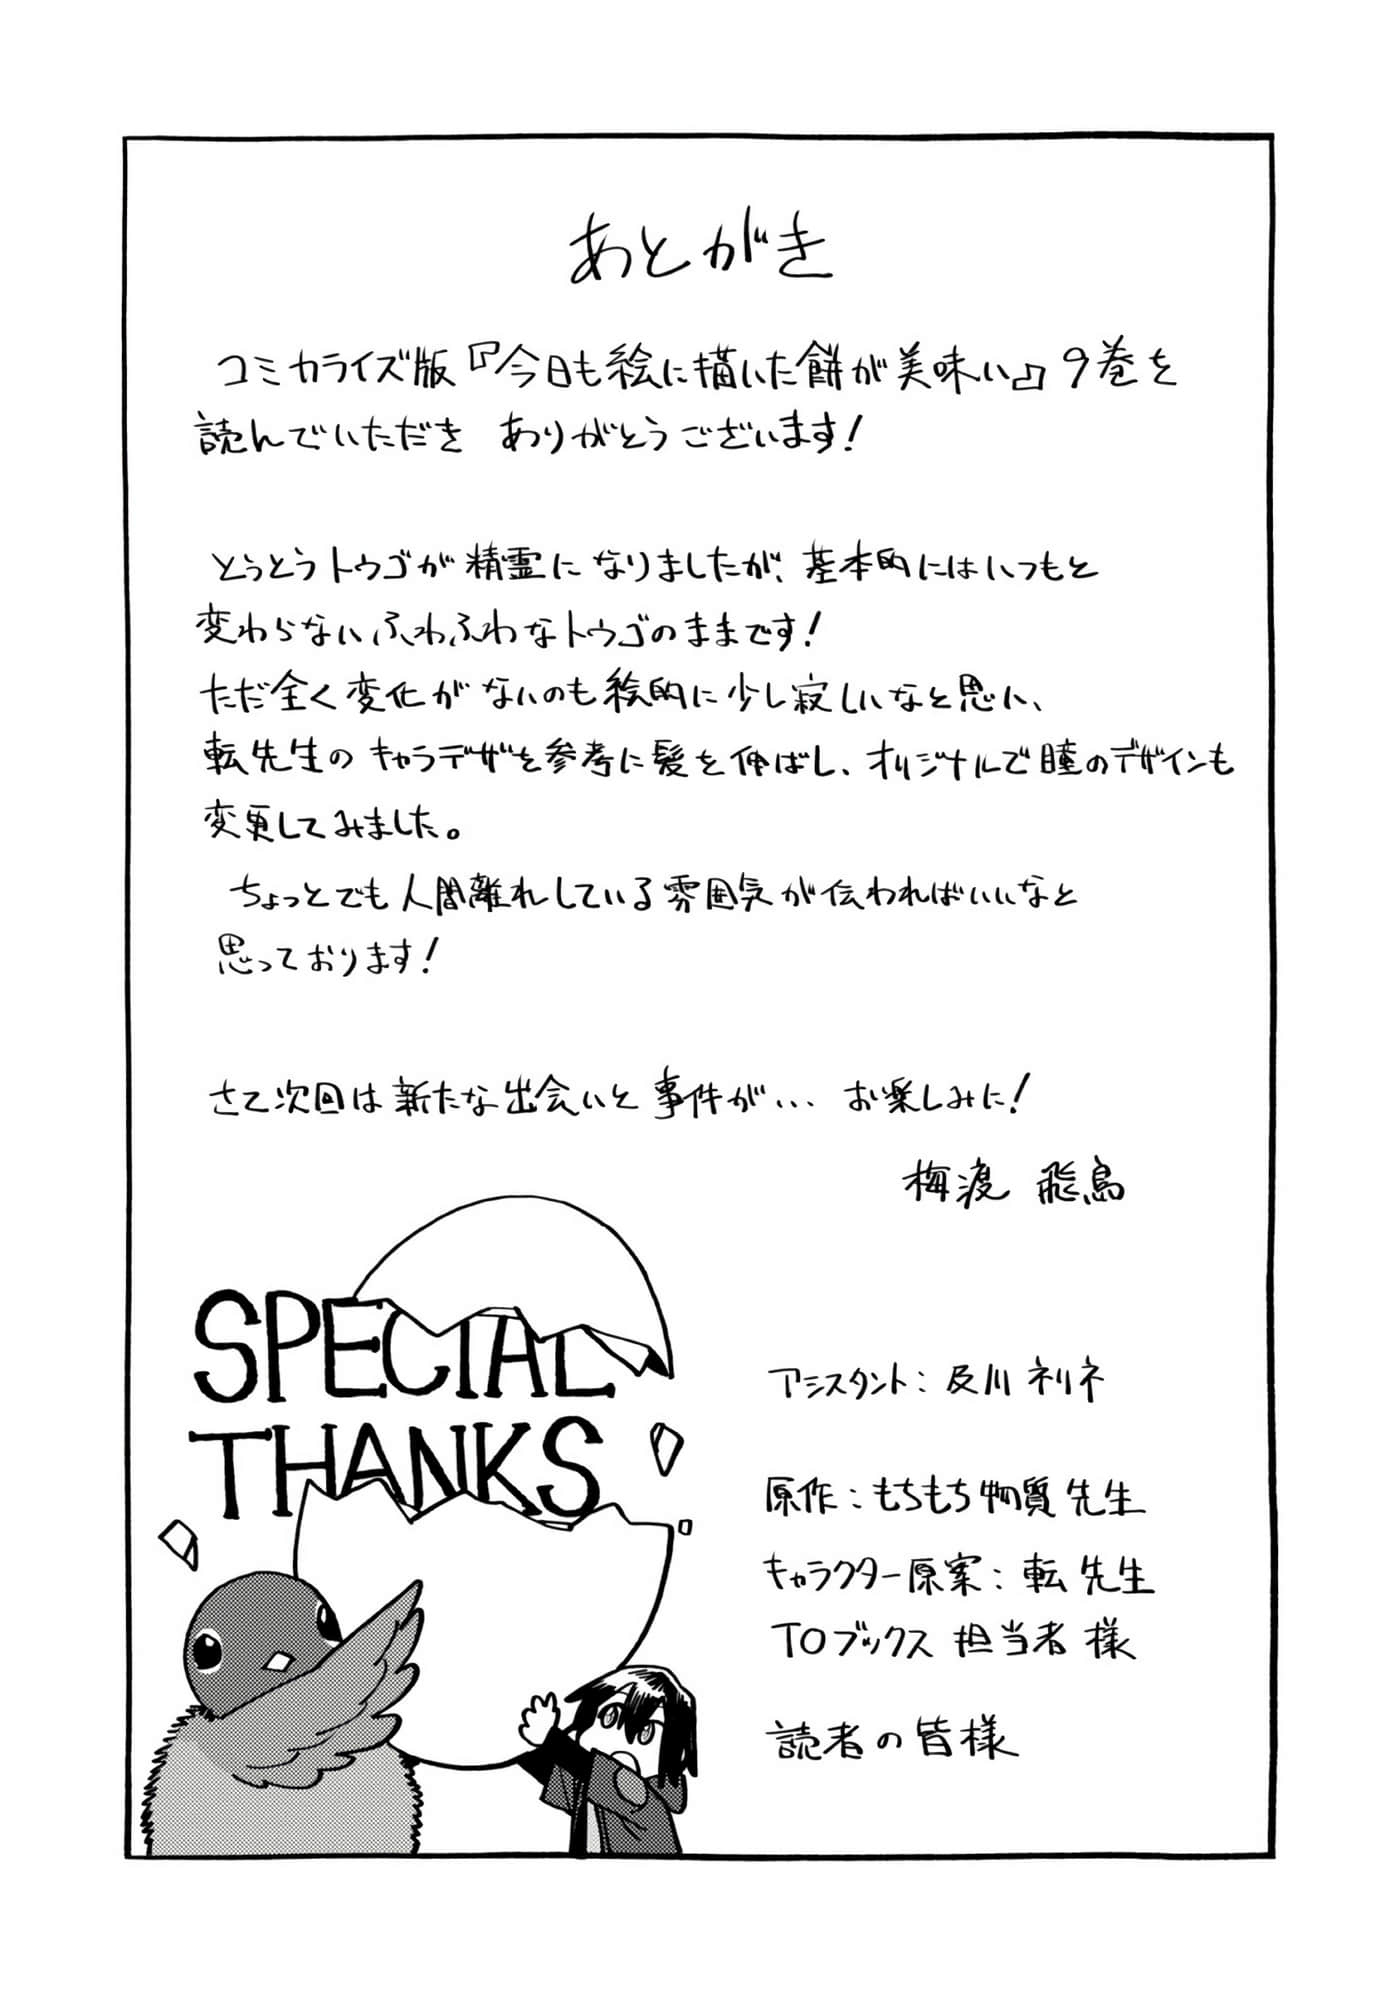 あとがき
コミカライズ版『今日も絵に描いた餅が美味い』9巻を
読んでいただき ありがとうございます!
とうとうトウゴが精霊になりましたが、基本的にはいつもと
変わらないふわふわなトウゴのままです!
ただ全く変化がないのも絵的に少し寂しいなと思い、
転先生のキャラデザを参考に髪を伸ばし、オリジナルで瞳のデザインも
変更してみました。
ちょっとでも人間離れしている雰囲気が伝わればいいなと
思っております!
さて次回は新たな出会いと事件が... お楽しみに!
梅渡 飛鳥
SPECIAL
THANKS
アシスタント:及川 ネリネ
原作:もちもち物質先生
キャラクター原案:転先生
TOブックス 担当者様
読者の皆様